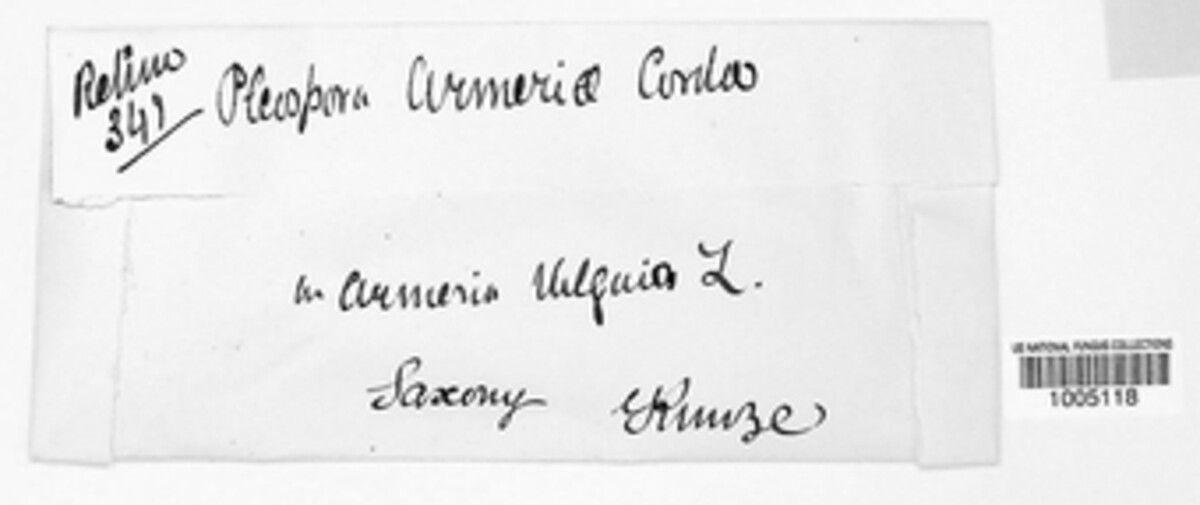 Pleospora Armeriæ Corda
341
on Armeria Vulgaris L.
Saxony Kunze
US NATIONAL FUNGUS COLLECTIONS
1005118